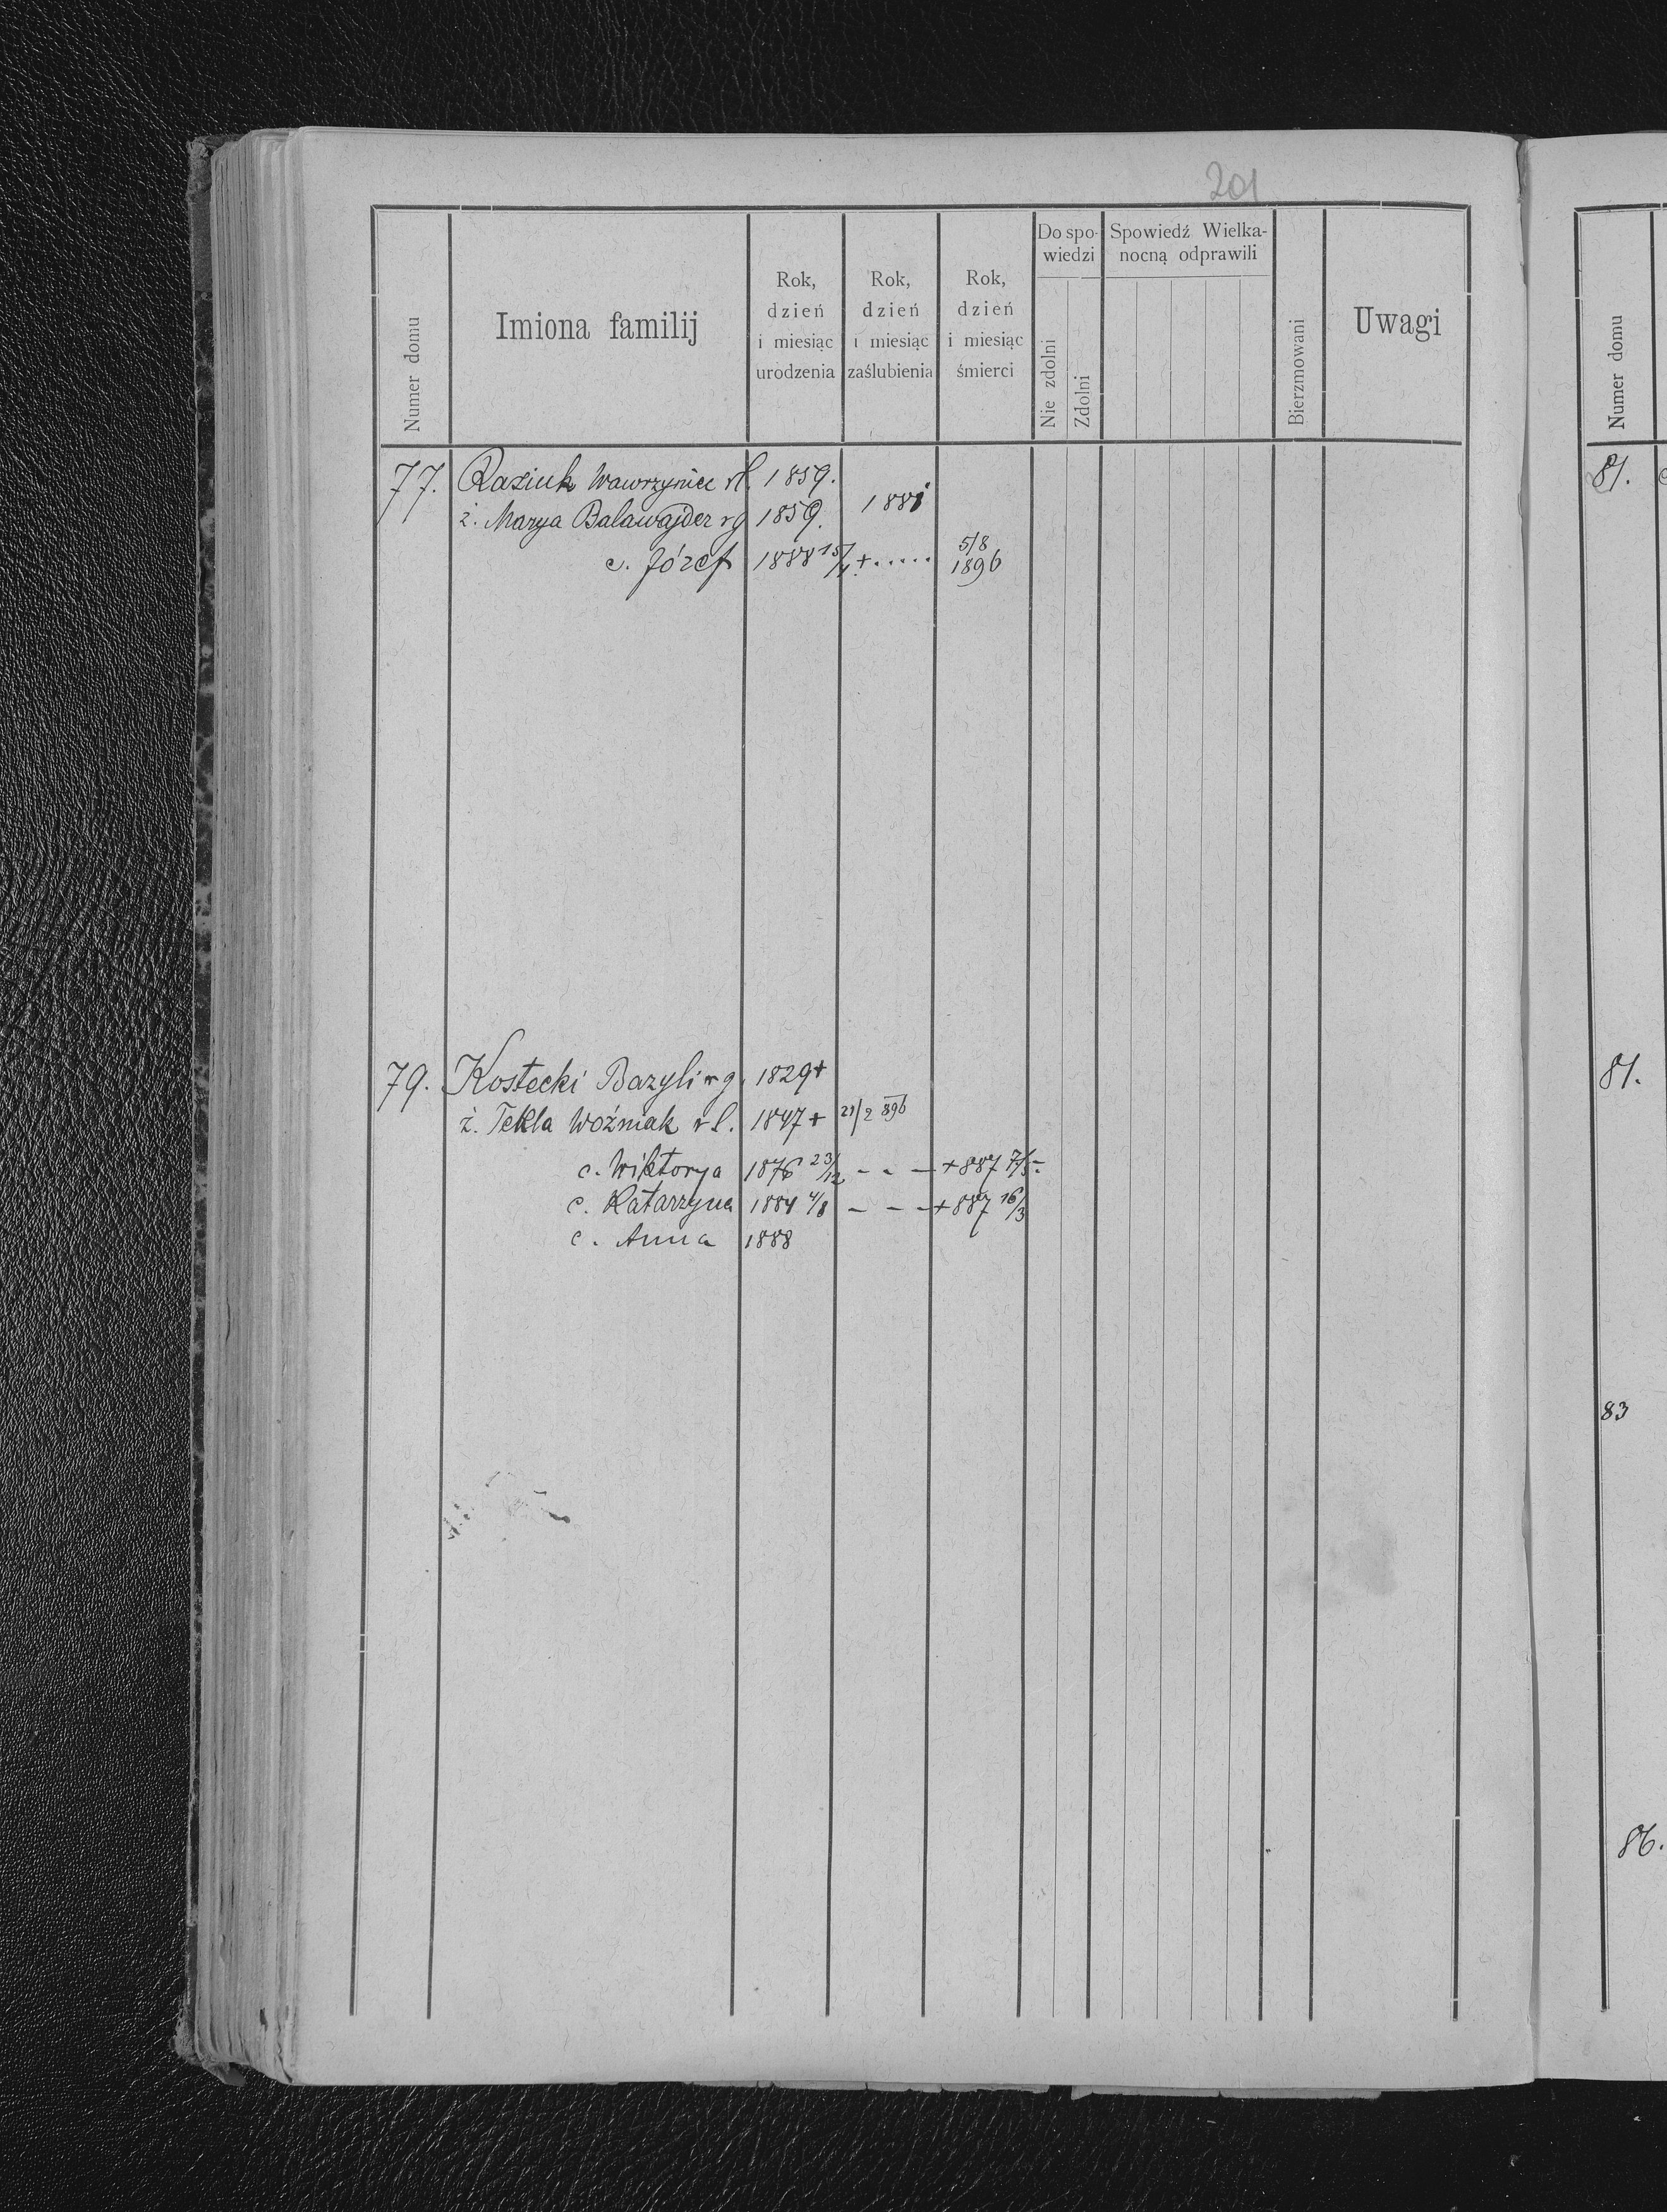 201
Numer domu
Imiona familij
Rok, dzień i miesiąc urodzenia
Rok, dzień i miesiąc zaślubienia
Rok, dzień i miesiąc śmierci
Do spo-
wiedzi
Nie zdolni
Zdolni
Spowiedź Wielka-
nocną odprawili
Bierzmowani
Uwagi
77. Wawrzyniec rł. 1859.
ż. Marya Balawajder rg 1859. 1881
c. Józef 1888 15/11 + ..... 5/8 1896
79. Kostecki Bazyli rg. 1829 +
ż. Tekla Woźniak rł. 1847 + 21/2 896
c. Wiktorya 1876 23/12 - - - + 887 7/5.
c. Katarzyna 1884 4/8 - - - + 887 16/3
c. Anna 1888
Numer domu
81.
81.
83
86.